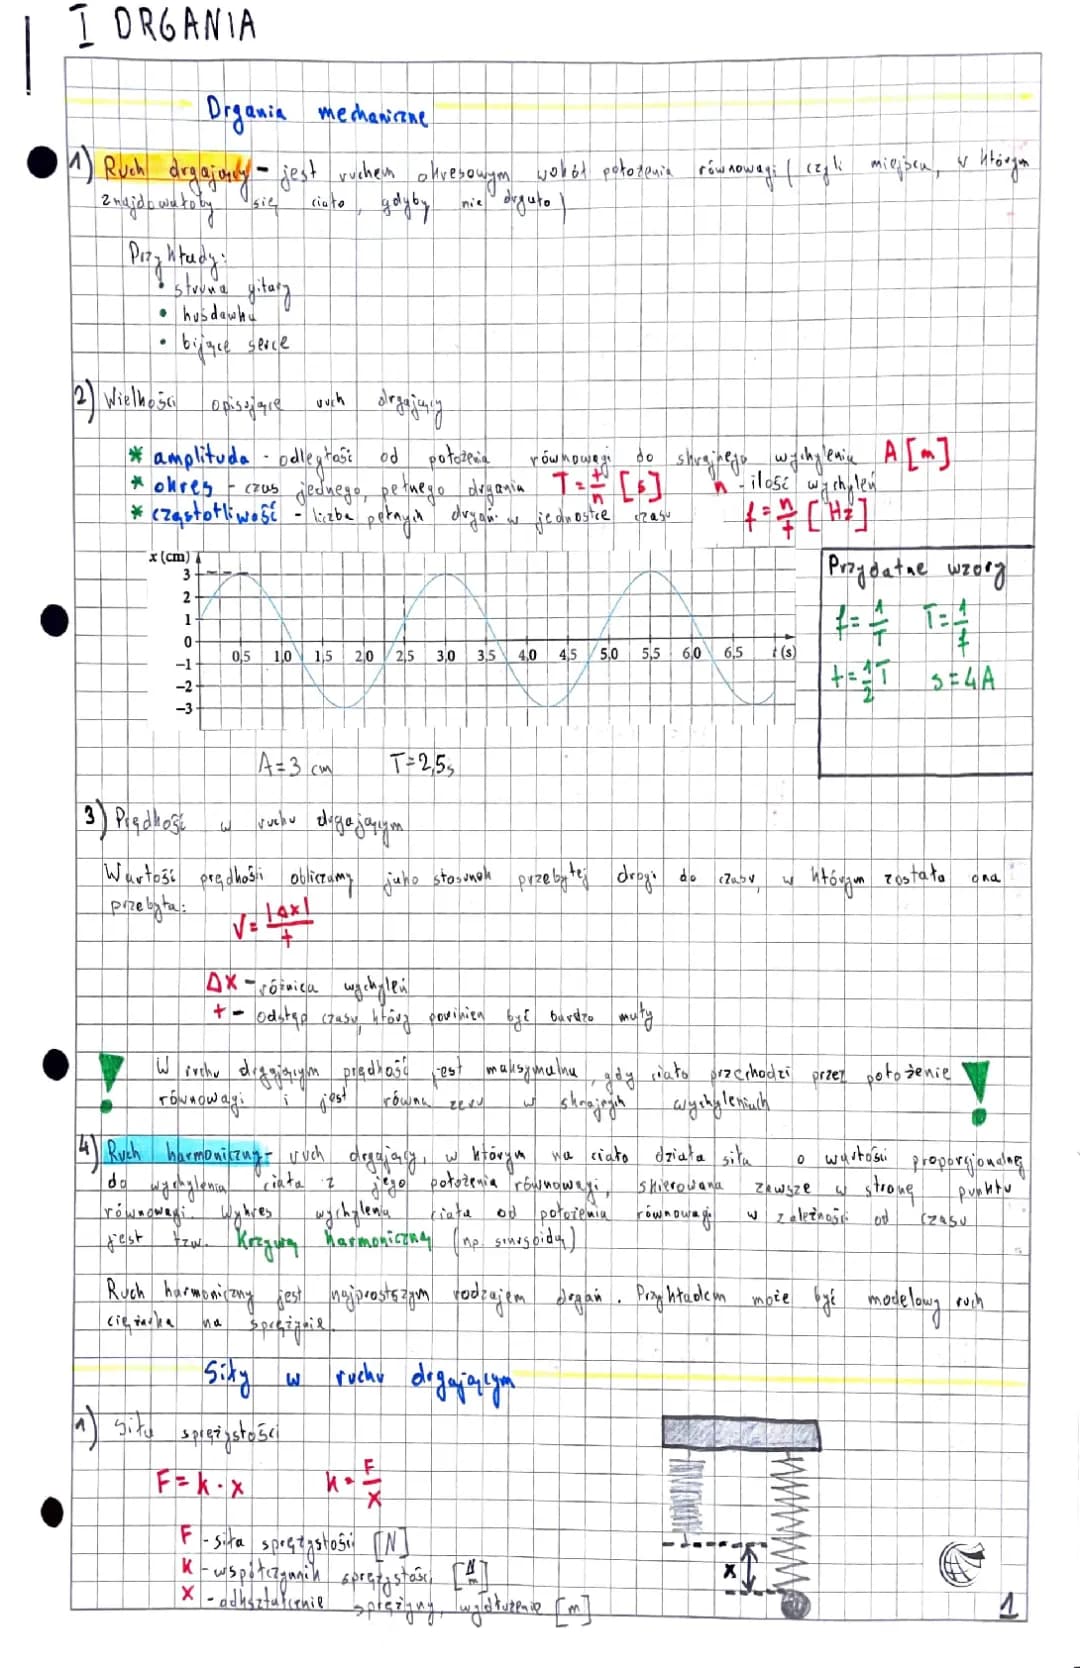 I DRGANIA
Drgania mechaniczne
1) Ruch drgający - jest ruchem okresowym wokół położenia równowagi (czyli miejsca, w którym
znajdowałoby się ciało, gdyby nie drgało)
Przykłady:
• struna gitary
• huśdawka
• bijące serce
2) Wielkości opisujące ruch drgający
* amplituda - odległość od położenia równowagi do skrajnego wychylenia A [m]
* okres - czas jednego, pełnego drgania T = t/n [s] n - ilość wychyleń
* częstotliwość - liczba pełnych drgań w jednostce czasu f = n/t [Hz]
x (cm)
3
2
1
0
-1
-2
-3
0,5 1,0 1,5 2,0 2,5 3,0 3,5 4,0 4,5 5,0 5,5 6,0 6,5 t (s)
Przydatne wzory
f = 1/T T = 1/f
t = 1/2 T s = 4A
A = 3 cm T = 2,5s
3) Prędkość w ruchu drgającym
Wartość prędkości obliczamy jako stosunek przebytej drogi do czasu, w którym została ona
przebyta:
V = |Δx|/t
Δx - różnica wychyleń
t - odstęp czasu, który powinien być bardzo mały
! W ruchu drgającym prędkość jest maksymalna, gdy ciało przechodzi przez położenie !
równowagi i jest równa zeru w skrajnych wychyleniach
4) Ruch harmoniczny - ruch drgający, w którym na ciało działa siła o wartości proporcjonalnej
do wychylenia ciała z jego położenia równowagi, skierowana zawsze w stronę punktu
równowagi. Wykres wychylenia ciała od położenia równowagi w zależności od czasu
jest tzw. Krzywą harmoniczną (np. sinusoidą)
Ruch harmoniczny jest najprostszym rodzajem drgań. Przykładem może być modelowy ruch
ciężarka na sprężynie.
Siły w ruchu drgającym
1) Siła sprężystości
F = k · x k = F/x
F - siła sprężystości [N]
k - współczynnik sprężystości [N/m]
x - odkształcenie sprężyny, wydłużenie [m]
x
1